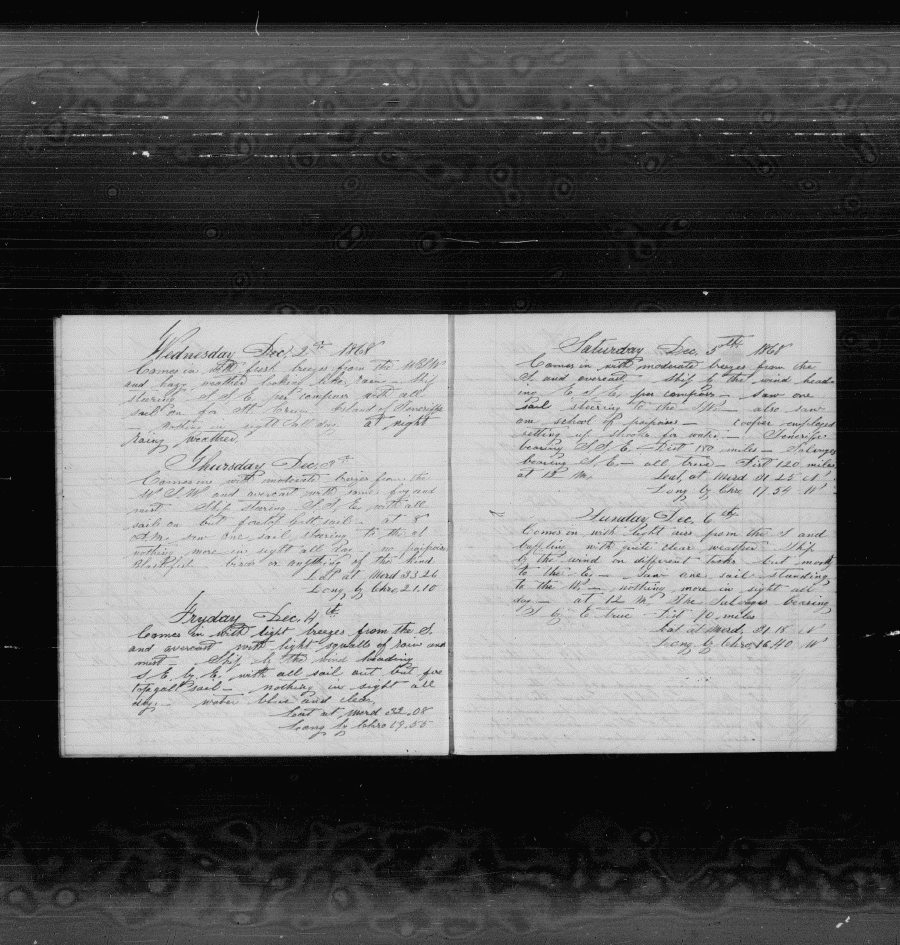 Wednesday Dec, 2nd 1868
Comes in with fresh breezes from the WSW
and hazy weather looking like rain — Ship
staring S S E per compass with all
sail on for St Island of Tenerriffe
— nothing in sight all day at night
rainy weather
Thursday Dec, 3rd
Comes in with moderate breezes from the
W S W and overcast with some fog and
mist — Ship staring S S E with all
sail on but foretop Gallt sail — at 8
A.M. saw one sail steering to the
nothing more in sight all day — no porpoises
Blackfish birds or anything of the kind
Lat at Merd 33.26
Long by Chro 21.10
Fryday Dec, 4th
Comes in with light breezes from the S.
and overcast with light squalls of rain and
mist — Ship by the wind heading
S E by E, with all sail out but fore
topgall sail — nothing in sight all
day — water blue and clear
Latt at Merd 32.08
Long by Chro 19.55
Saturday Dec, 5th 1868
Comes in with moderate breezes from the
S, and overcast Ship by the wind head
ing E S E, per compass — saw one
sail steering to the SW — also saw
one school of porpoises — cooper employed
setting up shooks for water — Tenerife
bearing S S E Dist 180 miles — Salvages
bearing S E — all true — Dist 120 miles
at 12 M. Lat, at Merd 31.25 N
Long by Chro, 17.54 W
Sunday Dec, 6th
Comes in with light airs from the S and
baffling with quite clear weather Ship
by the wind on different tacks but mostly
to the E — Saw one sail standing
to the W — nothing more in sight all
day — at 12 M, The Salvages bearing
S E true Dist 70 miles
Lat at Merd, 31 18 N
Long by Chro 16.40 W